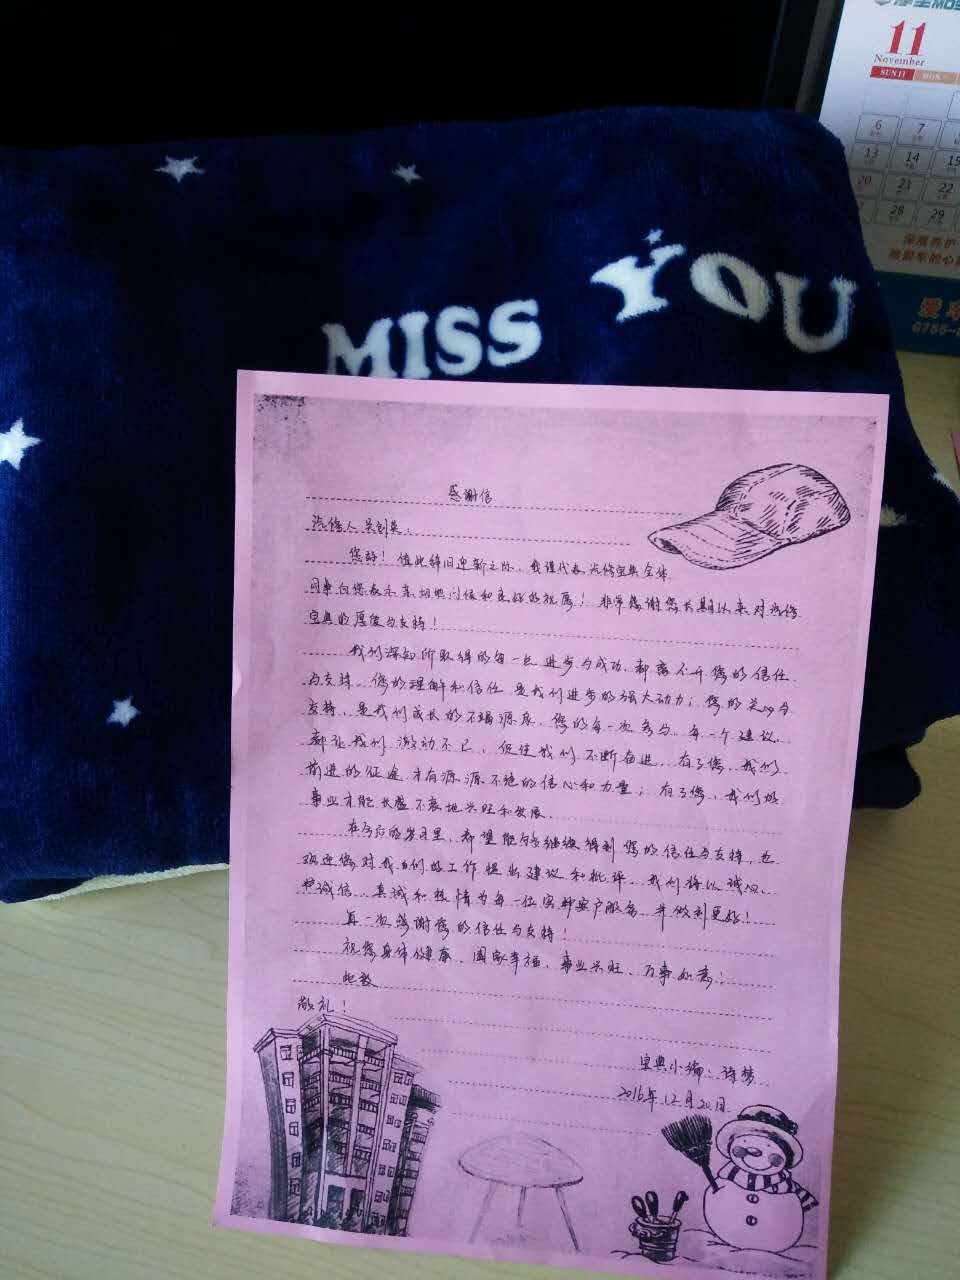 11
November
SUN日
MON一
6
7
13
14
15
20
21
22
28
29
深度养护
0755-
MISS YOU
感谢信
汽修人吴创英：
您好！值此辞旧迎新之际，我谨代表汽修宝典全体
同事向您表示亲切地问候和良好的祝愿！非常感谢您长期以来对汽修
宝典的厚爱与支持！
我们深知所取得的每一点进步与成功，都离不开您的信任
与支持。您的理解和信任是我们进步的强大动力；您的关心与
支持，是我们成长的不竭源泉。您的每一次参与、每一个建议，
都让我们激动不已，促使我们不断奋进。有了您，我们
前进的征途才有源源不绝的信心和力量；有了您，我们的
事业才能长盛不衰地兴旺和发展。
在今后的岁月里，希望能够继续得到您的信任与支持，也
欢迎您对我们的工作提出建议和批评。我们将以诚心、
诚信、真诚和热情为每一位客户服务，并做到更好！
再一次感谢您的信任与支持！
祝您身体健康、阖家幸福、事业兴旺、万事如意！
此致
敬礼！
宝典小编：诗梦
2016年12月20日